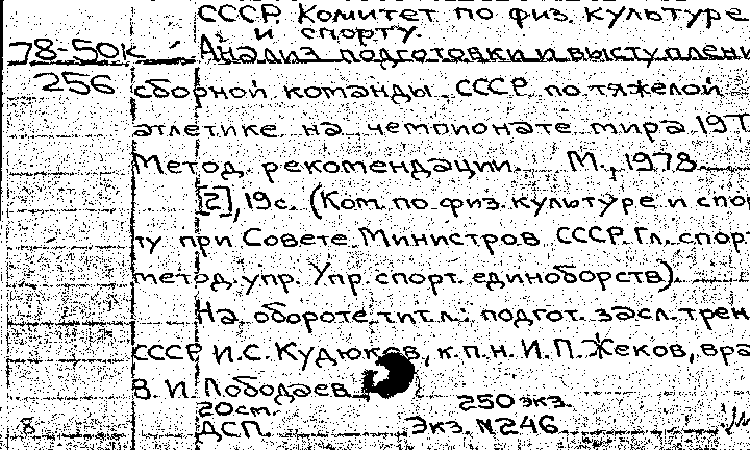 СССР. Комитет по физ. культуре
и спорту.
78-50к Анализ подготовки и выступлени
256 сборной команды СССР по тяжелой
атлетике на чемпионате мира 197
Метод. рекомендации. М., 1978.
[2], 19с. (Ком. по физ. культуре и спор
ту при Совете Министров СССР. Гл. спорт.
метод. упр. Упр. спорт. единоборств)
На обороте тит.л.: подгот. засл. трен
СССР И.С. Кудюков, к.п.н. И.П. Жеков, вра
В. И. Лободаев.
20 см. 250 экз.
8 ДСП. Экз. №246